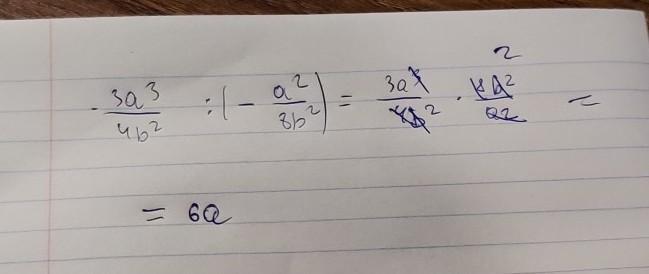 - 3a³/4b² : (- a²/8b²) = 3a³/4b² · 8b²/a² = 2
= 6a